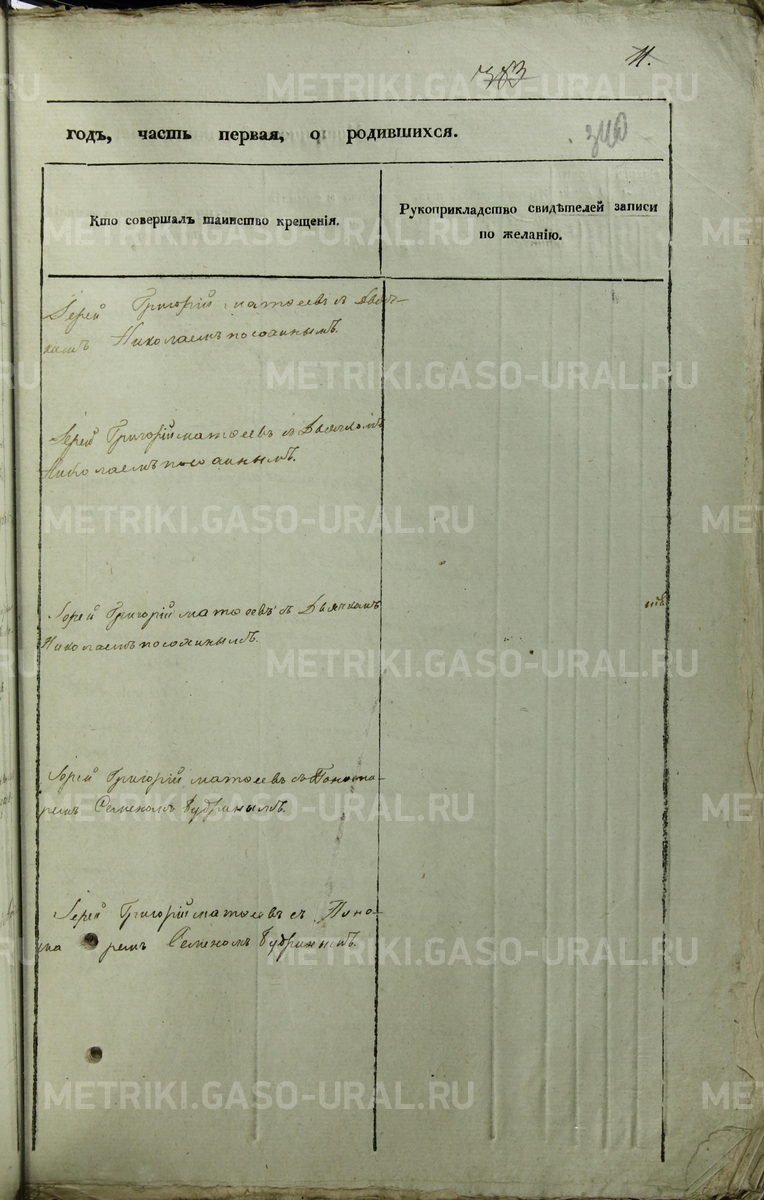 383
11.
340
годъ, часть первая, о родившихся.
Кто совершалъ таинство крещенія.
Рукоприкладство свидѣтелей записи
по желанію.
Іерей Григорій матөеевъ съ дьяч-
комъ Николаемъ
Іерей Григорій матөеевъ съ Дьячкомъ
Николаемъ
Іерей Григорій матөеевъ съ Дьячкомъ
Николаемъ
Іерей Григорій матөеевъ съ Понома-
ремъ Семеномъ
Іерей Григорій матөеевъ съ Поно-
ма ремъ Семеномъ
METRIKI.GASO-URAL.RU